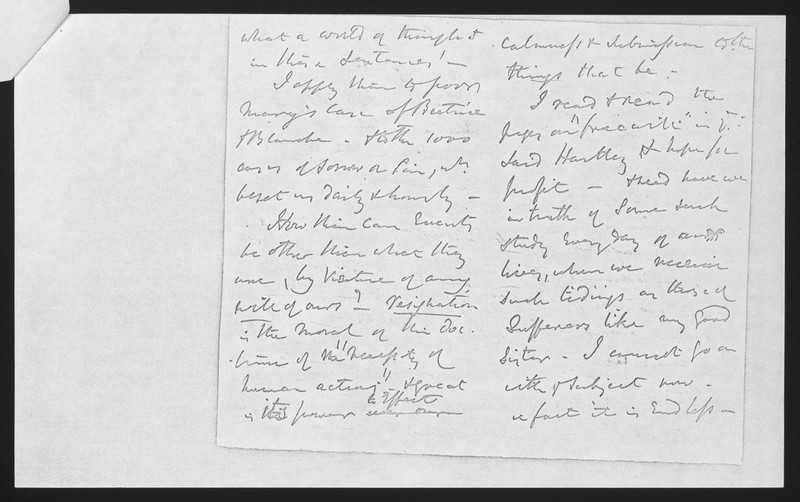 what a world of thought
in these sentences! —
I apply them to poor
Mary's case of Beatrice
& Blanche. & to the 1000
cases of sorrow or Pain, wh.
beset us daily & hourly —
How then can Events
be other than what they
are, by Virtue of any
will of ours? — Resignation
is the moral of this Doc-
trine of the "necessity of
human actions" & great
is its power to Effect
calmness & submission to the
things that be.
I read & read the
pages on "free will" in
said Hartley & hope for
profit — & need have we
in truth of some such
study every day of our
lives, when we receive
such tidings as these of
Sufferers like my good
Sister. I cannot go on
with subject now.
in fact it is Endless —